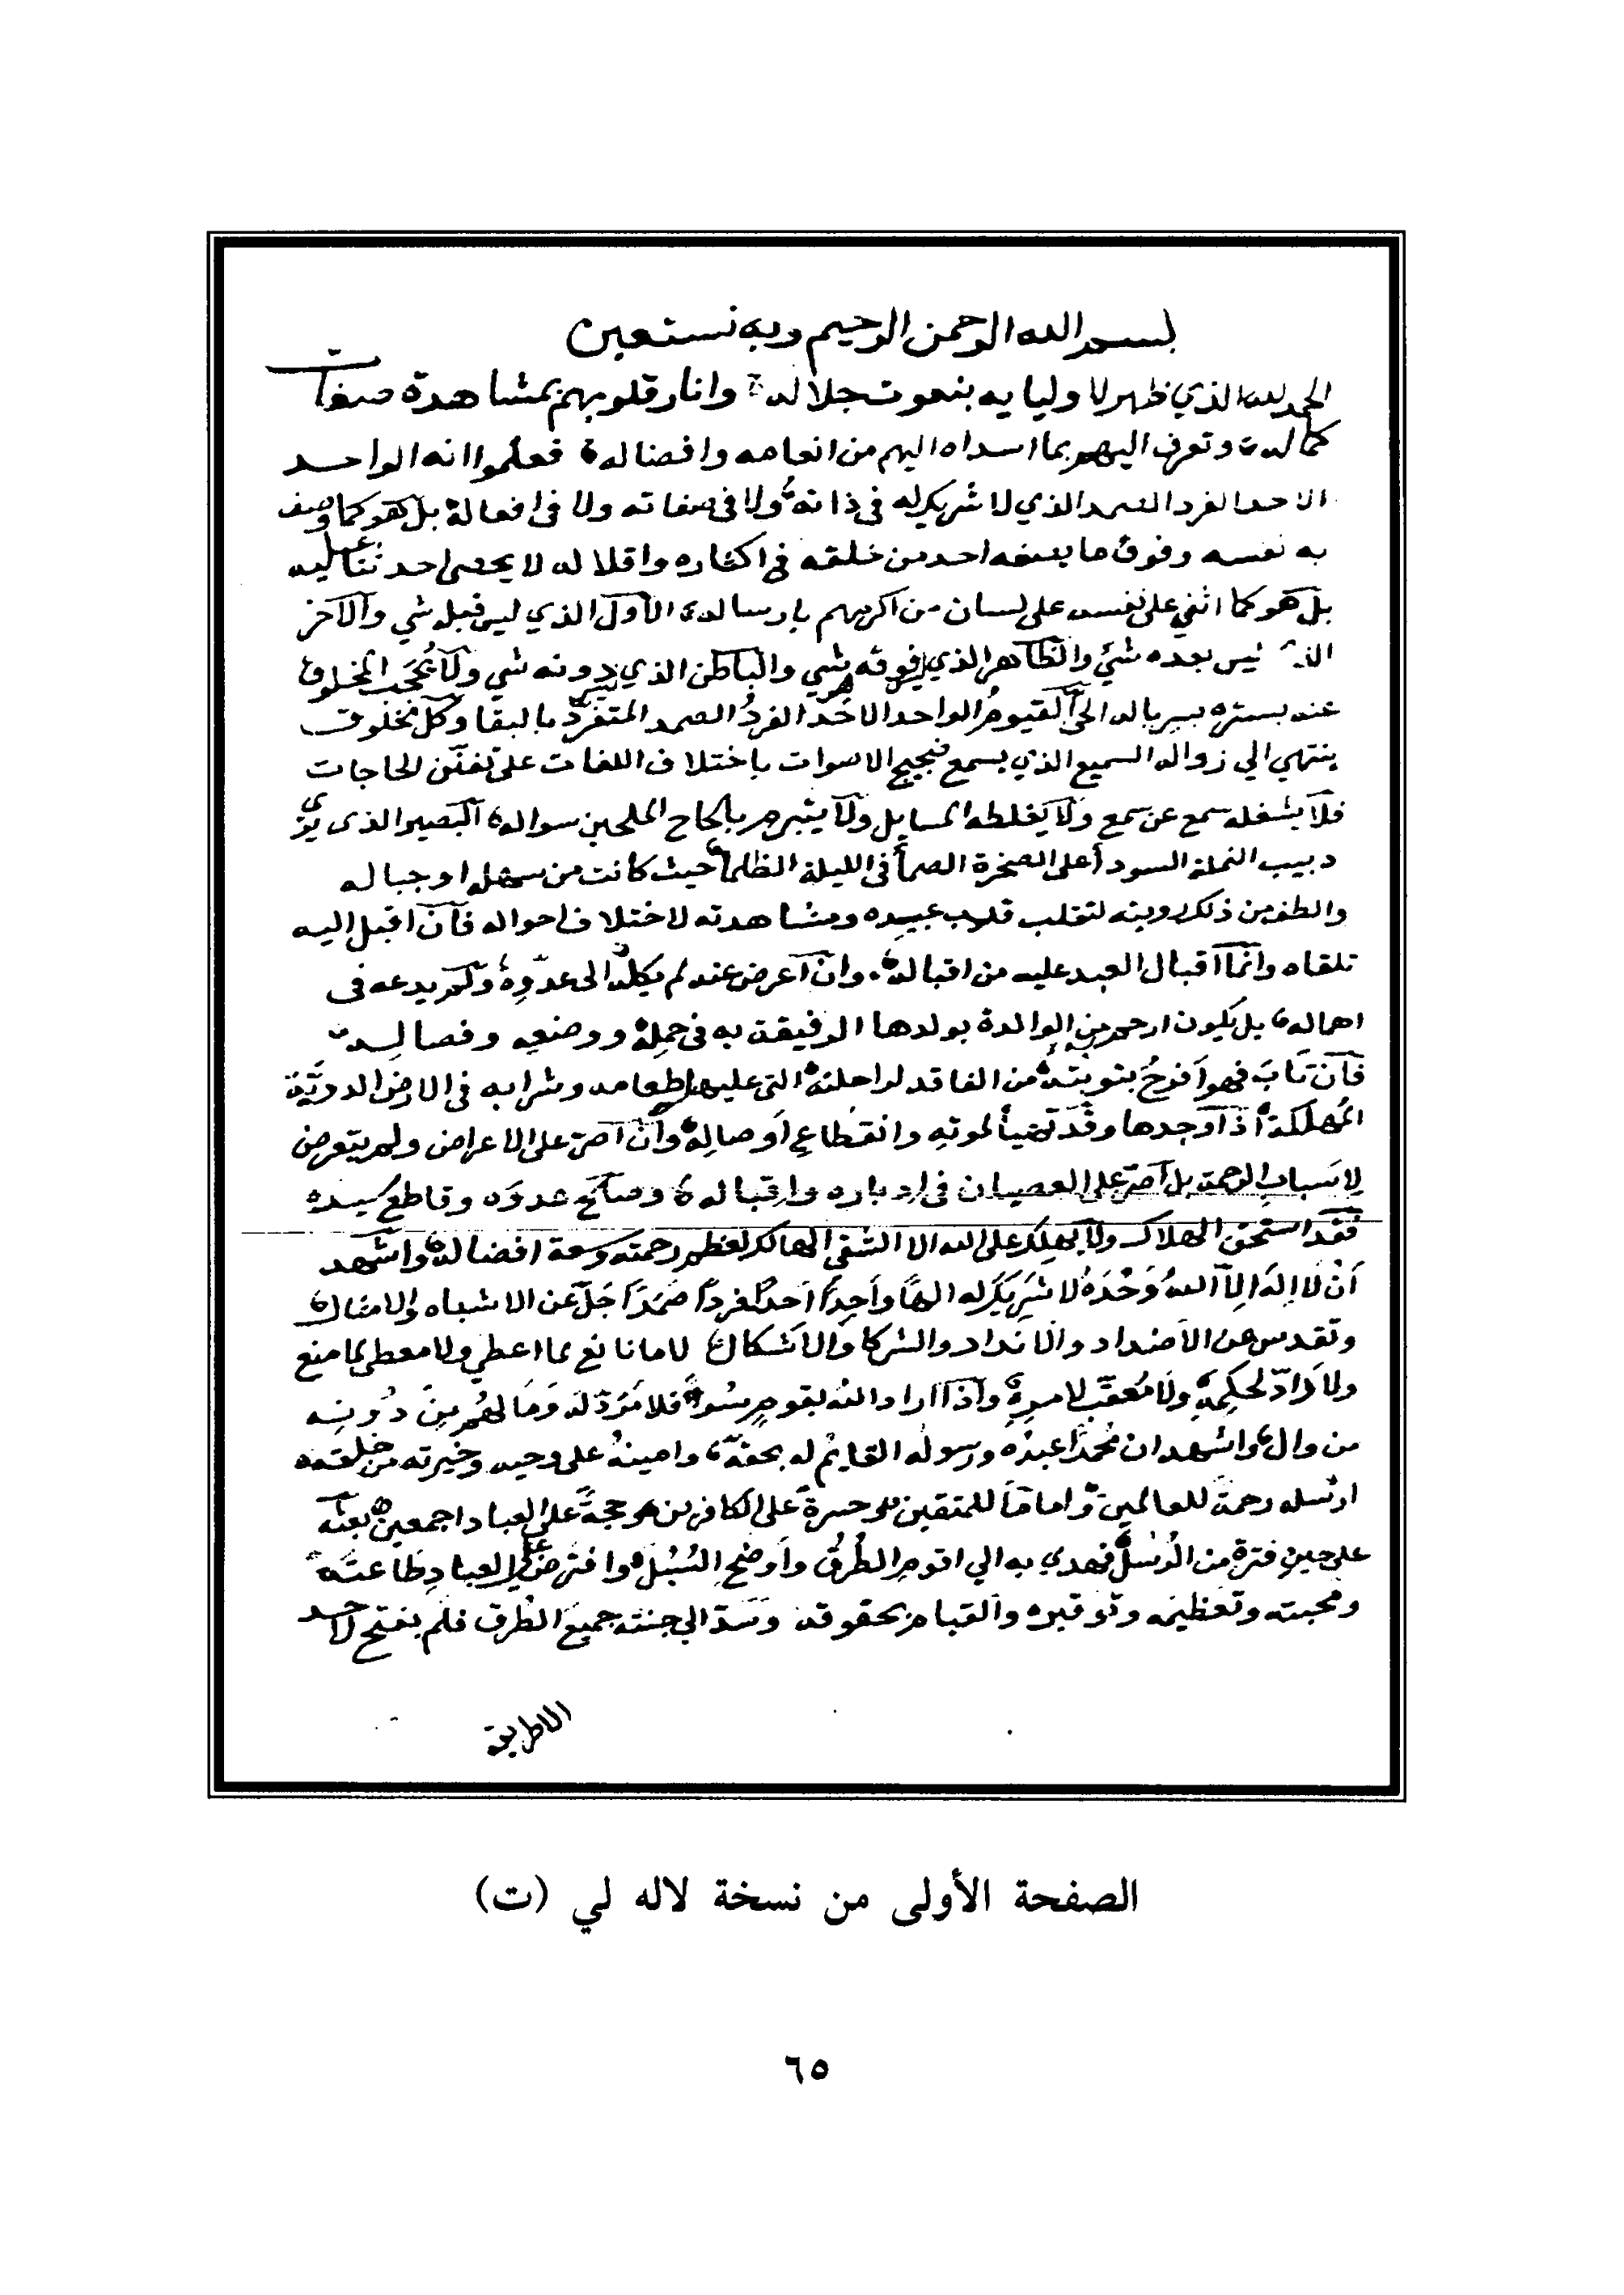 بسم الله الرحمن الرحيم وبه نستعين
الحمد لله الذي ظهر لاوليايه بنعوت جلاله وانار قلوبهم بمشاهدة صفات
كماله وتعرف اليهم بما اسداه اليهم من انعامه وافضاله فعلموا انه الواحد
الاحد الفرد الصمد الذي لا شريك له في ذاته ولا في صفاته ولا في افعاله بل هو كما وصف
به نفسه وفوق ما يصفه احد من خلقه في اكثاره واقلاله لا يحصى احد ثنا عليه
بل هو كما اثني على نفسه على لسان من اكرمهم بارساله الاول الذي ليس قبله شي والآخر
الذي ليس بعده شئ والظاهر الذي ليس فوقه شي والباطن الذي دونه شي ولا يحجب المخلوق
عنه بستره بسرباله الحي القيوم الواحد الاحد الفرد الصمد المتفرد بالبقا وكل مخلوق
ينتهي الي زواله السميع الذي يسمع ضجيج الاصوات باختلاف اللغات على تفنن الحاجات
فلا يشغله سمع عن سمع ولا يغلطه المسايل ولا يتبرم بالحاح الملحين سواله البصير الذى يرى
دبيب النملة السودا على الصخرة الصما في الليلة الظلما حيث كانت من سهله او جباله
والطف من ذلك رويته لتقلب قلوب عبيده ومشاهدته لاختلاف احواله فان اقبل اليه
تلقاه وانما اقبال العبد عليه من اقباله وان اعرض عنه لم يكله الى عدوه ولم يدعه في
اهماله بل يكون ارحم من الوالدة بولدها الرفيقة به في حمله ووضعه وفصاله
فان تاب فهو افرح بتوبته من الفاقد لراحلته التي عليها طعامه وشرابه في الارض الدوية
المهلكة اذا وجدها وقد تهيأ لموته وانقطاع اوصاله وان اصر على الاعراض ولم يتعرض
لاسباب الرحمة بل اصر على العصيان في ادباره واقباله وصالح عدوه وقاطع سيده
فقد استحق الهلاك ولا يهلك على الله الا الشقي الهالك لعظم رحمته وسعة افضاله واشهد
أن لا إله الا الله وحده لا شريك له الها واحدا احدا فردا صمدا جل عن الاشباه والامثال
وتقدس عن الأضداد والانداد والشركا والاشكال لا مانع لما اعطي ولا معطي لما منع
ولا راد لحكمه ولا معقب لامره واذا اراد الله بقوم سوء فلا مرد له وما لهم من دونه
من وال واشهد ان محمدا عبده ورسوله القايم له بحقه وامينه على وحيه وخيرته من خلقه
ارسله رحمة للعالمين واماما للمتقين وحسرة على الكافرين وحجة على العباد اجمعين بعثه
على حين فترة من الرسل فهدي به الي اقوم الطرق واوضح السبل وافترض على العباد طاعته
ومحبته وتعظيمه وتوقيره والقيام بحقوقه وسد الي جنته جميع الطرق فلم يفتح لاحد
الصفحة الأولى من نسخة لاله لي (ت)
٦٥